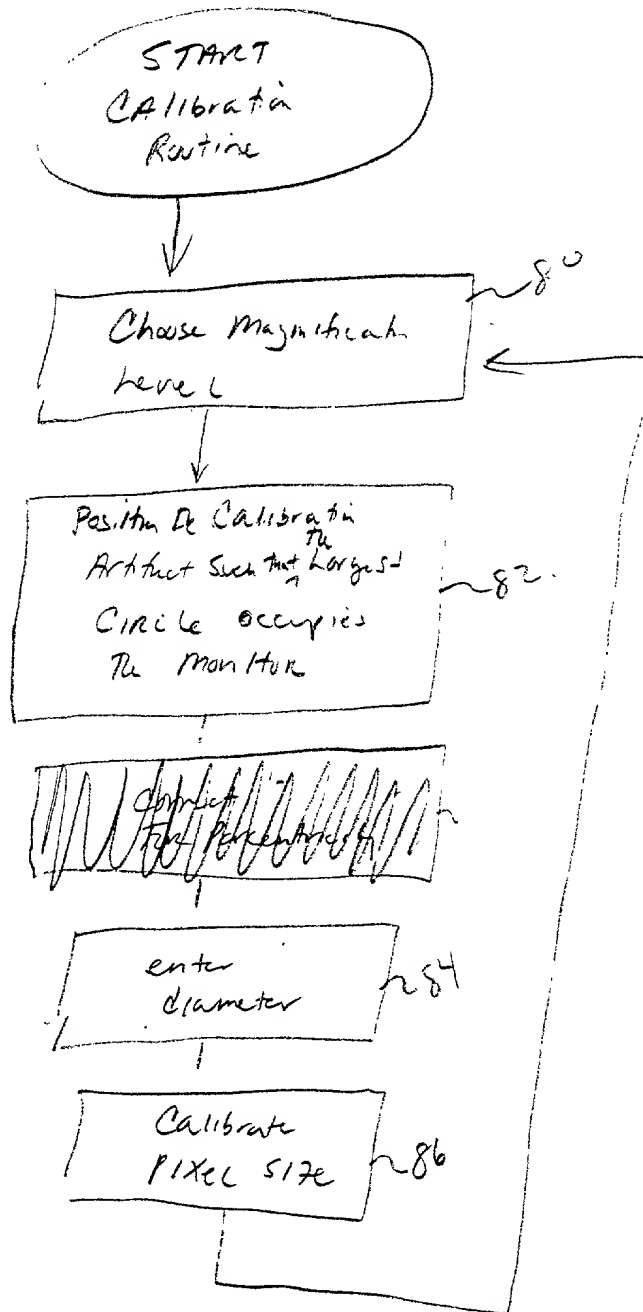 START
CAlibration
Routine
80
Choose Magnification
Level
Position The Calibration
The
Artifact Such that Largest
82
Circle occupies
The Monitor
Correct
For
enter
84
diameter
Calibrate
Pixel Size
86